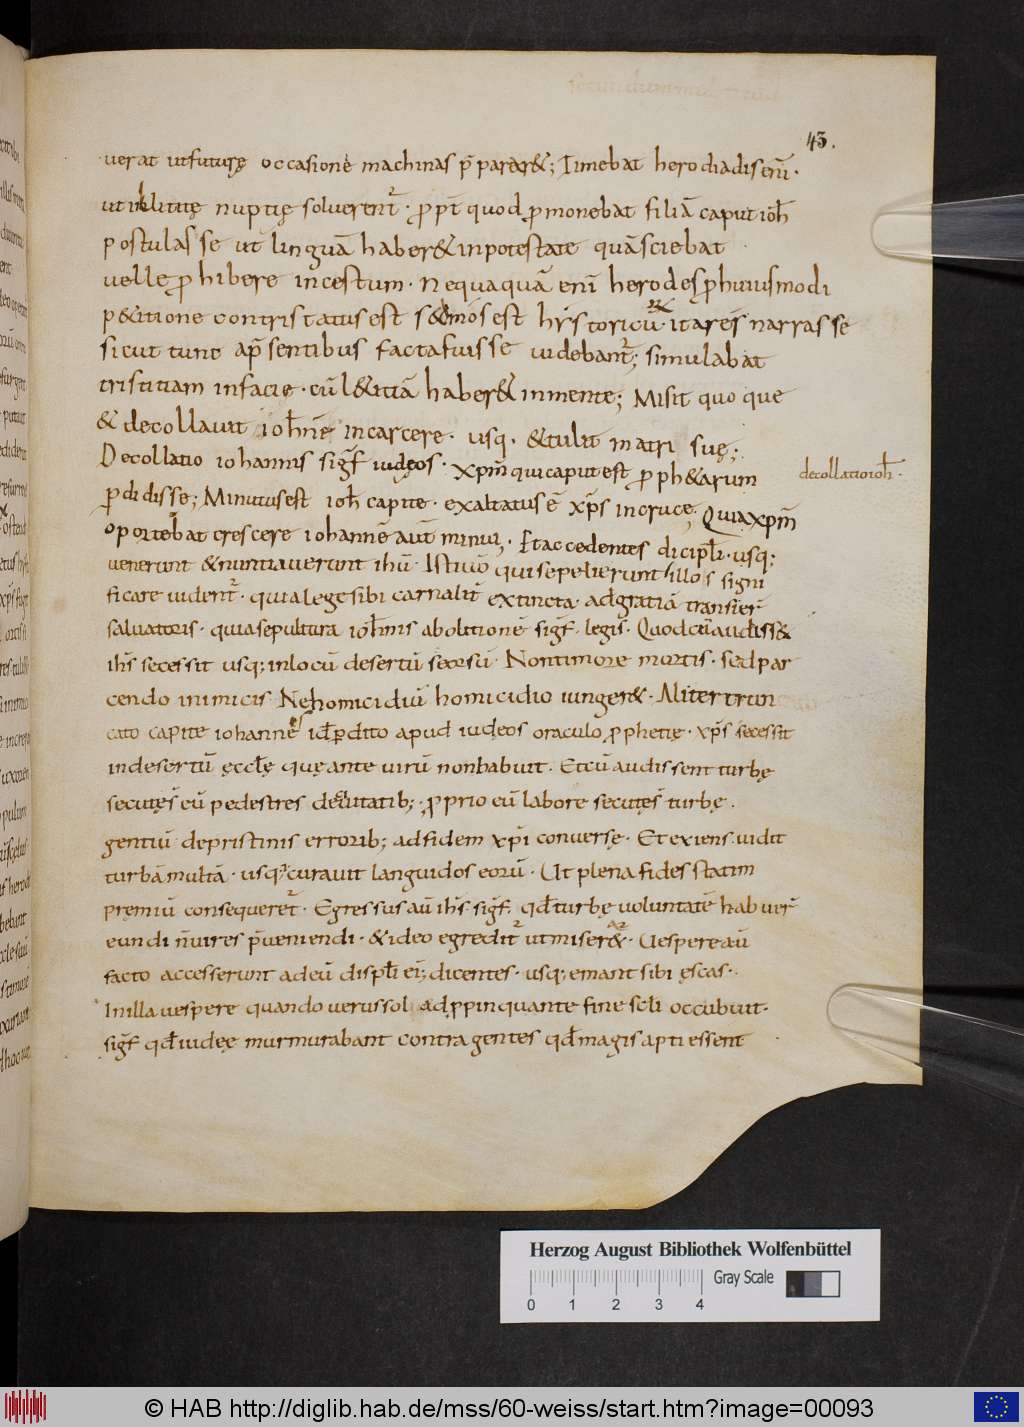 43.
uerat ut futurę occasionē machinas p̄pararet; Timebat herodiadis enī.
ut inlicitę nuptię soluerent᷑. ꝓpt̄ quod p̱monebat filiā caput ioh̄
postulasse ut linguā haber& inpotestate quā sciebat
uelle ꝓhibere incestum. Nequaquā enī herodes ꝓ huiusmodi
p&itione contristatus est s& mos est hystoricū ita res narrasse
sicut tunc ap̄sentibus facta fuisse uidebant᷑; simulabat
tristitiam in facie. cū l&itiā haber& inmente; Misit quoque
& decollauit ioh̄nē incarcere. usq. &tulit matri suę;
Decollatio iohannis sigf̄ iudęos. xp̄m qui caput est ꝓph&arum
ꝑdidisse; Minutus est ioh̄ capite. exaltatus ē xp̄s in cruce; Quia xp̄m
decollatio ioh̄.
oportebat crescere iohannē aut̄ minui. Et accedentes dicipl̄i. usq;
uenerunt & nuntiauerunt ihū. Istiuō qui sepelierunt illos signi
ficare uident᷑. quia lege sibi carnalit᷑ extincta. ad gratiā transier᷑
saluatoris. quia sepultura ioh̄nis abolitionē sigf̄. legis. Quod cū audiss&
ih̄s secessit usq; in locū desertū seorsū. Non timore mortis. sed par
cendo inimicis Ne homicidiū homicidio iunger&. Aliter trun
cato capite iohannes id̄ ꝑdito apud iudęos oraculo ꝓphetię. xp̄s secessit
in desertū ęccl̄ę quę ante uirū non habuit. Et cū audissent turbę
secutęs̄ eū pedestres de ciuitatib; ꝓprio eū labore secutęs̄ turbę.
gentiū de pristinis errorib; ad fidem xp̄i conuersę. Et exiens uidit
turbā multā. usq; curauit languidos eorū. Ut plena fides statim
pręmiū consequeret᷑. Egressus aū ih̄s sigf̄. qd̄ turbę uoluntatē habuer᷑
eundi n̄ uires p̄ueniendi. & ideo egredit᷑ ut miser&. Uespere aū
facto accesserunt ad eū displ̄i ei; dicentes. usq; emant sibi ęscas.
In illa uespere quando uerus sol adp̱pinquante fine scl̄i occubuit.
sigf̄ qd̄ iudęę murmurabant contra gentes qd̄ magis apti essent
Herzog August Bibliothek Wolfenbüttel
Gray Scale
0 1 2 3 4
© HAB http://diglib.hab.de/mss/60-weiss/start.htm?image=00093